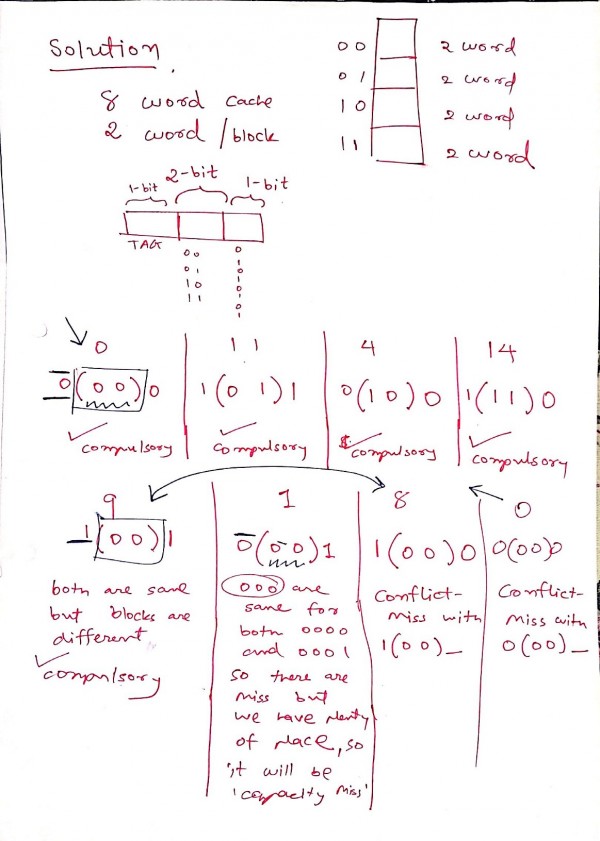 Solution.
8 word cache
2 word / block
00 2 word
01 2 word
10 2 word
11 2 word
1-bit 2-bit 1-bit
TAG
00 0
01 1
10 0
11 1
0
1
0
1
0 11 4 14
0(00)0 1(01)1 0(10)0 1(11)0
compulsory compulsory compulsory compulsory
9 1 8 0
1(00)1 0(00)1 1(00)0 0(00)0
both are same
but blocks are
different
compulsory
000 are
same for
both 0000
and 0001
so there are
miss but
we have plenty
of place, so
it will be
'capacity miss'
Conflict-
miss with
1(00)_
Conflict-
Miss with
0(00)_